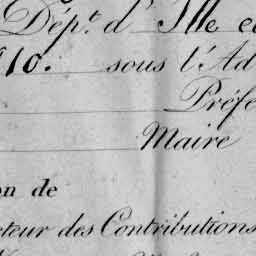 Dépt. d' Ille e
10. sous l'Ad
Préfe
Maire
on de
cteur des Contributions